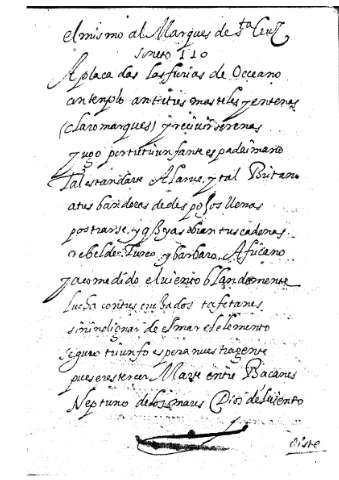 el mismo al Marques de Sta Cruz
soneto 110
Aplacadas las furias de Oceano
contemplo antietres masteles y entenas
(claro marques) y
yugo por triunfante espada i mano
Tal estandarte Alarve, y tal Britano
a tus banderas de despojos llenas
postrarse, y tus cadenas
rebelde, Turco, y barbaro Africano
ya comedido el viento blandamente
lucha con tus tafetanes
sin indignar de el mar el elemento
seguro triunfo espera nuestra gente
pues eres tercer Marte entre
Neptuno de los mares Dios del viento
oiste